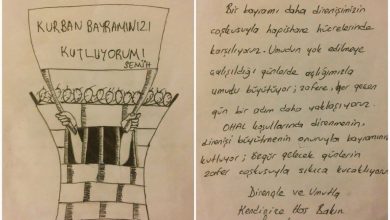 KURBAN BAYRAMINIZI
KUTLUYORUM!
SEMİH
Bir bayramı daha direnişimizin
coşkusuyla hapishane hücrelerinde
karşılıyoruz. Umudun yok edilmeye
çalışıldığı günlerde açlığımızla
umudu büyütüyor; zafere, her geçen
gün bir adım daha yaklaşıyoruz.
OHAL koşullarında direnmenin,
direnişi büyütmenin onuruyla bayramınızı
kutluyor; özgür gelecek günlerin
zafer coşkusuyla sıkıca kucaklıyorum.
Direnişle ve Umutla
Kendinize Hoş Bakın